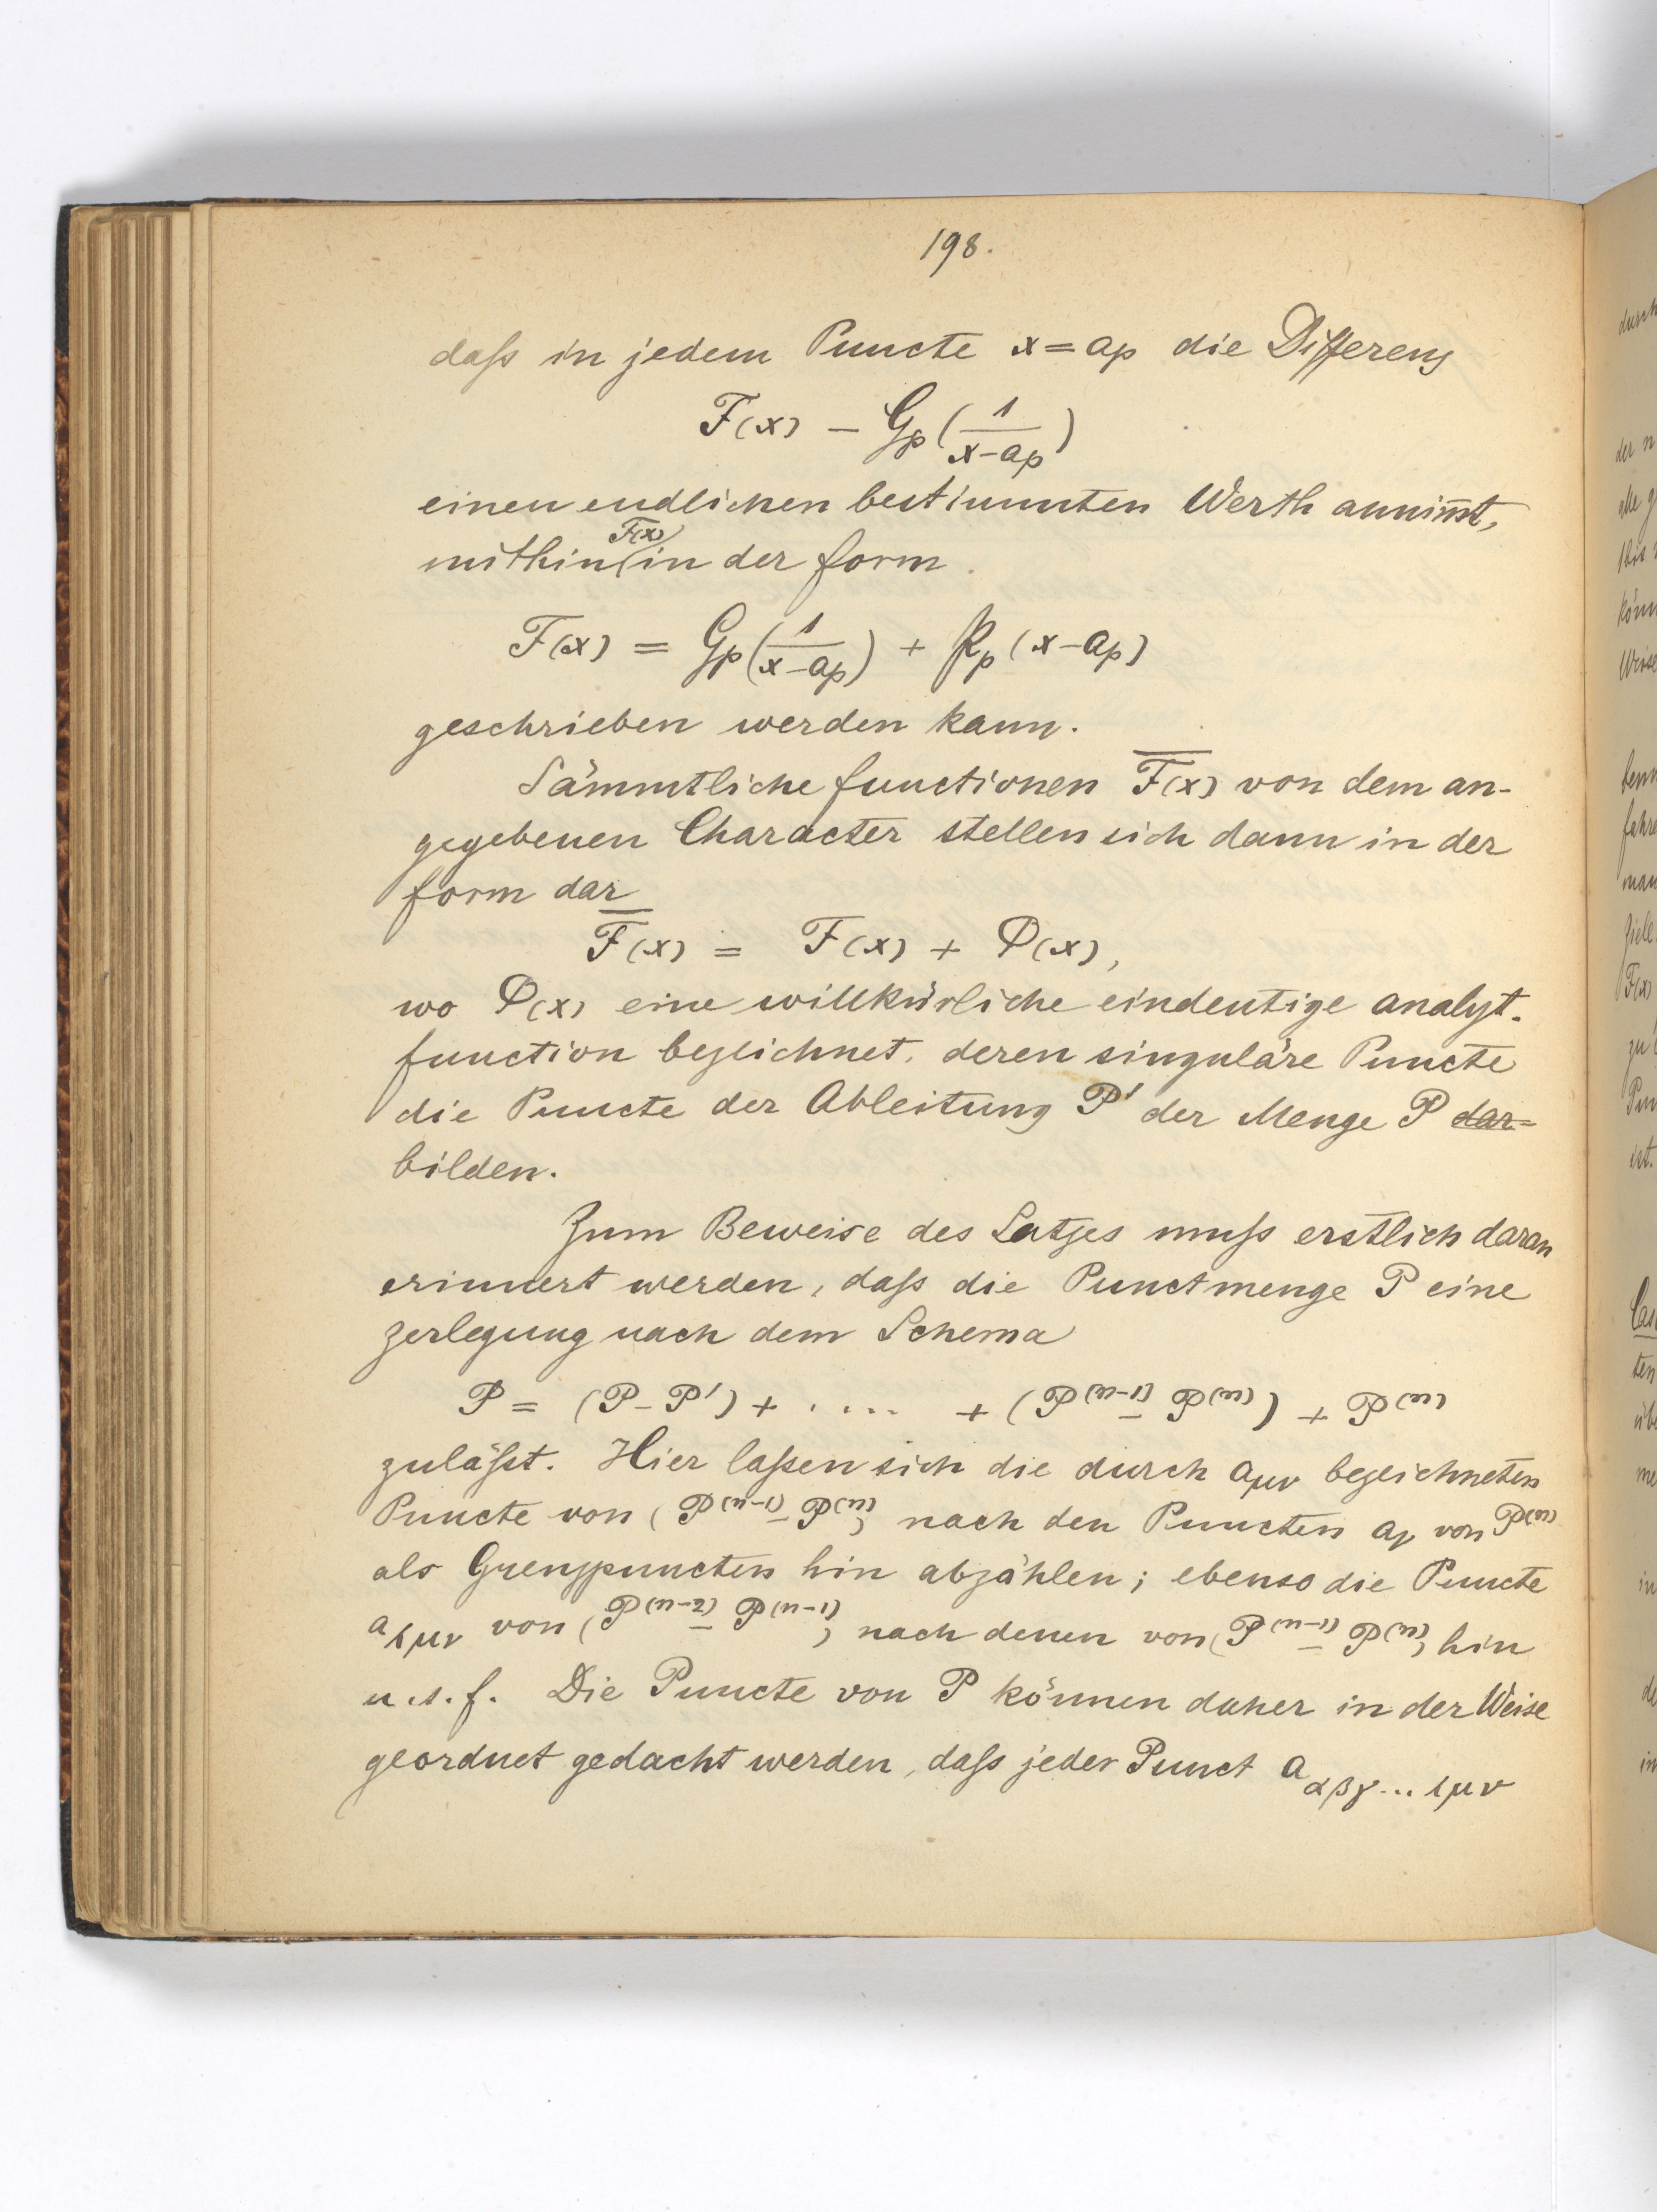 198.
daſs in jedem Puncte x = aₚ die Differenz
F(x) − Gₚ(1/(x−aₚ))
einen endlichen bestimmten Werth annim̅t,
F(x)
mithin in der Form
F(x) = Gₚ(1/(x−aₚ)) + 𝔓ₚ(x−aₚ)
geschrieben werden kann.
Sämmtliche Functionen F̅(x) von dem an-
gegebenen Character stellen sich dann in der
Form dar
F̅(x) = F(x) + Φ(x),
wo Φ(x) eine willkürliche eindeutige analyt.
Function bezeichnet, deren singuläre Puncte
die Puncte der Ableitung P' der Menge P dar=
bilden.
Zum Beweise des Satzes muſs erstlich daran
erinnert werden, daſs die Punctmenge P eine
Zerlegung nach dem Schema
P = (P − P') + .... + (P⁽ⁿ⁻¹⁾ − P⁽ⁿ⁾) + P⁽ⁿ⁾
zuläſst. Hier laſsen sich die durch a_μν bezeichneten
Puncte von (P⁽ⁿ⁻¹⁾ − P⁽ⁿ⁾) nach den Puncten a_ν von P⁽ⁿ⁾
als Grenzpuncten hin abzählen; ebenso die Puncte
a_λμν von (P⁽ⁿ⁻²⁾ − P⁽ⁿ⁻¹⁾) nach denen von (P⁽ⁿ⁻¹⁾ − P⁽ⁿ⁾) hin
u.s.f. Die Puncte von P können daher in der Weise
geordnet gedacht werden, daſs jeder Punct a_αβγ...λμν